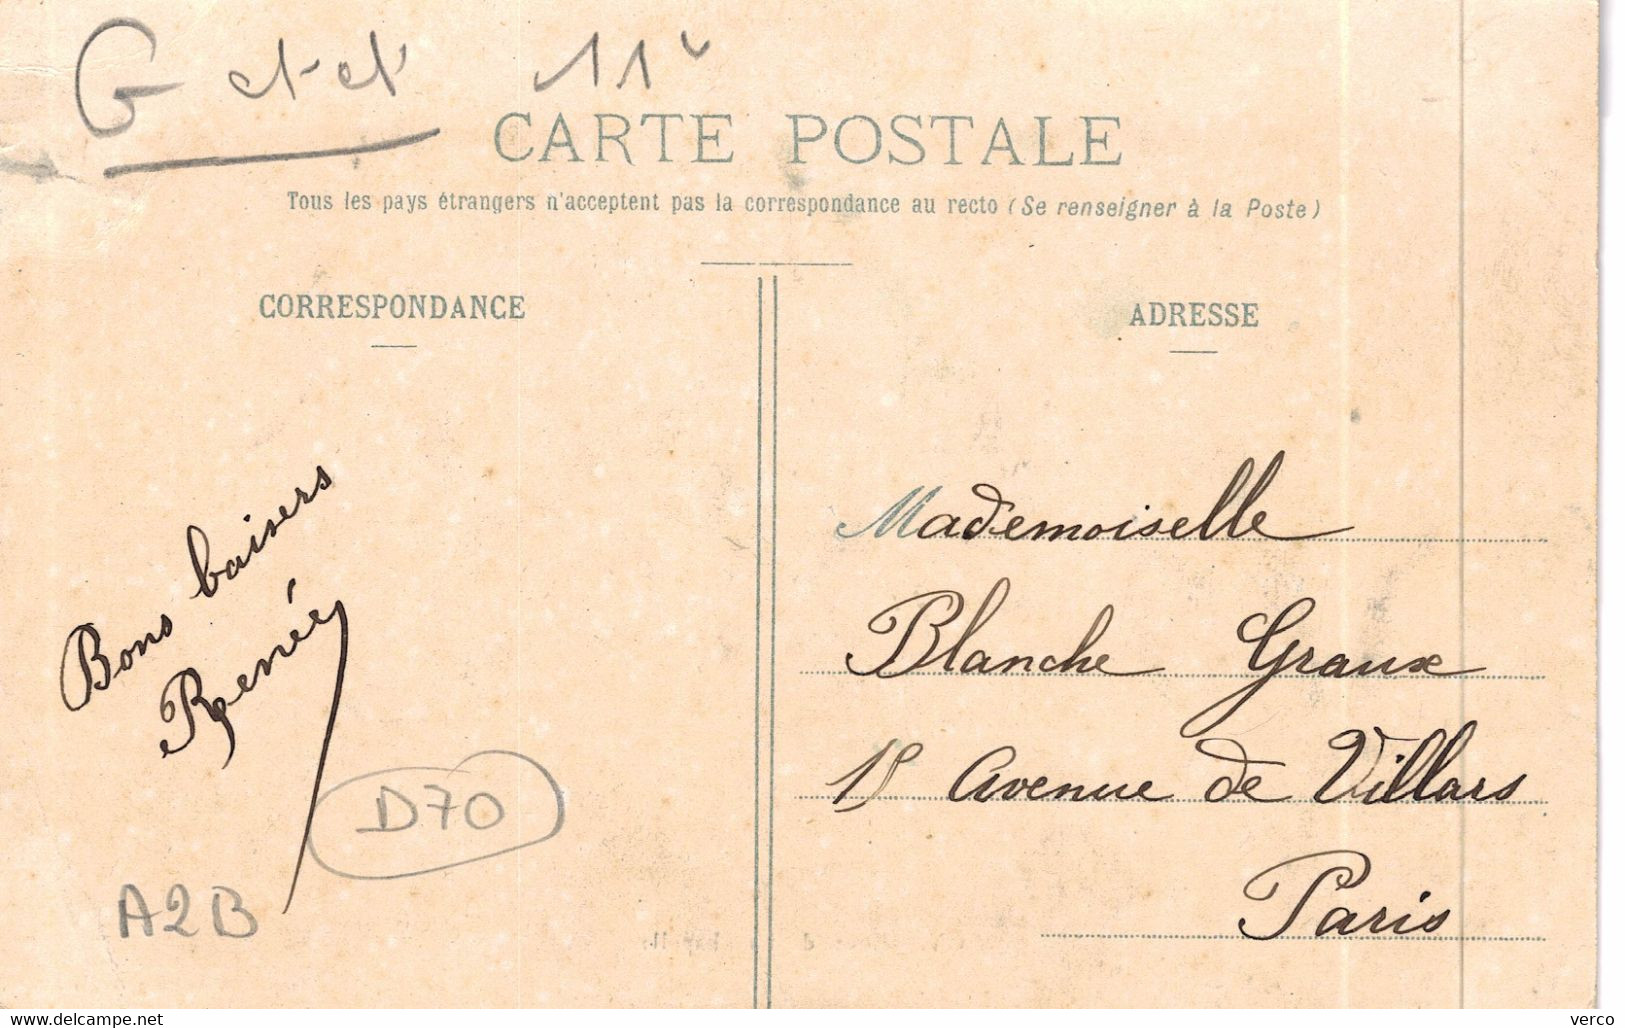 CARTE POSTALE
Tous les pays étrangers n'acceptent pas la correspondance au recto (Se renseigner à la Poste)
CORRESPONDANCE
ADRESSE
Bons baisers
Renée
D70
A2B
Mademoiselle
Blanche Graux
Avenue de Villars
Paris
www.delcampe.net
verco